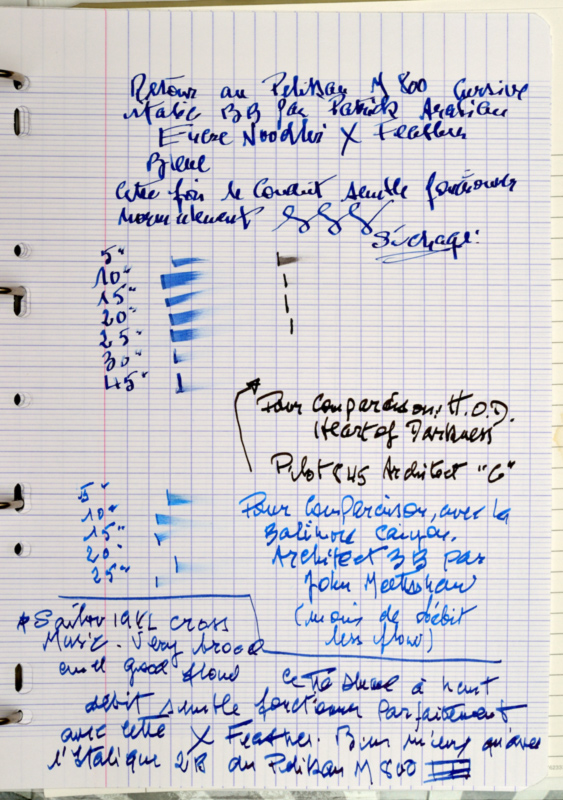 Retour au Pelikan M 800 Cursive
italic BB par Patrick
Encre X Feather
Bleue
Cette fois le Conduit semble fonctionner
normalement
Séchage:
5"
10"
15"
20"
25"
30"
45"
Pour Comparaison: H.O.D.
(Heart of Darkness
Pilot 845 Architect "G"
5"
10"
15"
20"
25"
Pour Comparaison, avec la
Architect 3B par
John
(moins de débit
less flow)
* Sailor 19KL cross
Music. Very broad
and good flow
Cette à haut
débit semble fonctionner Parfaitement
avec cette X Feather. Bien mieux qu'avec
l'Italique 2B du Pelikan M 800